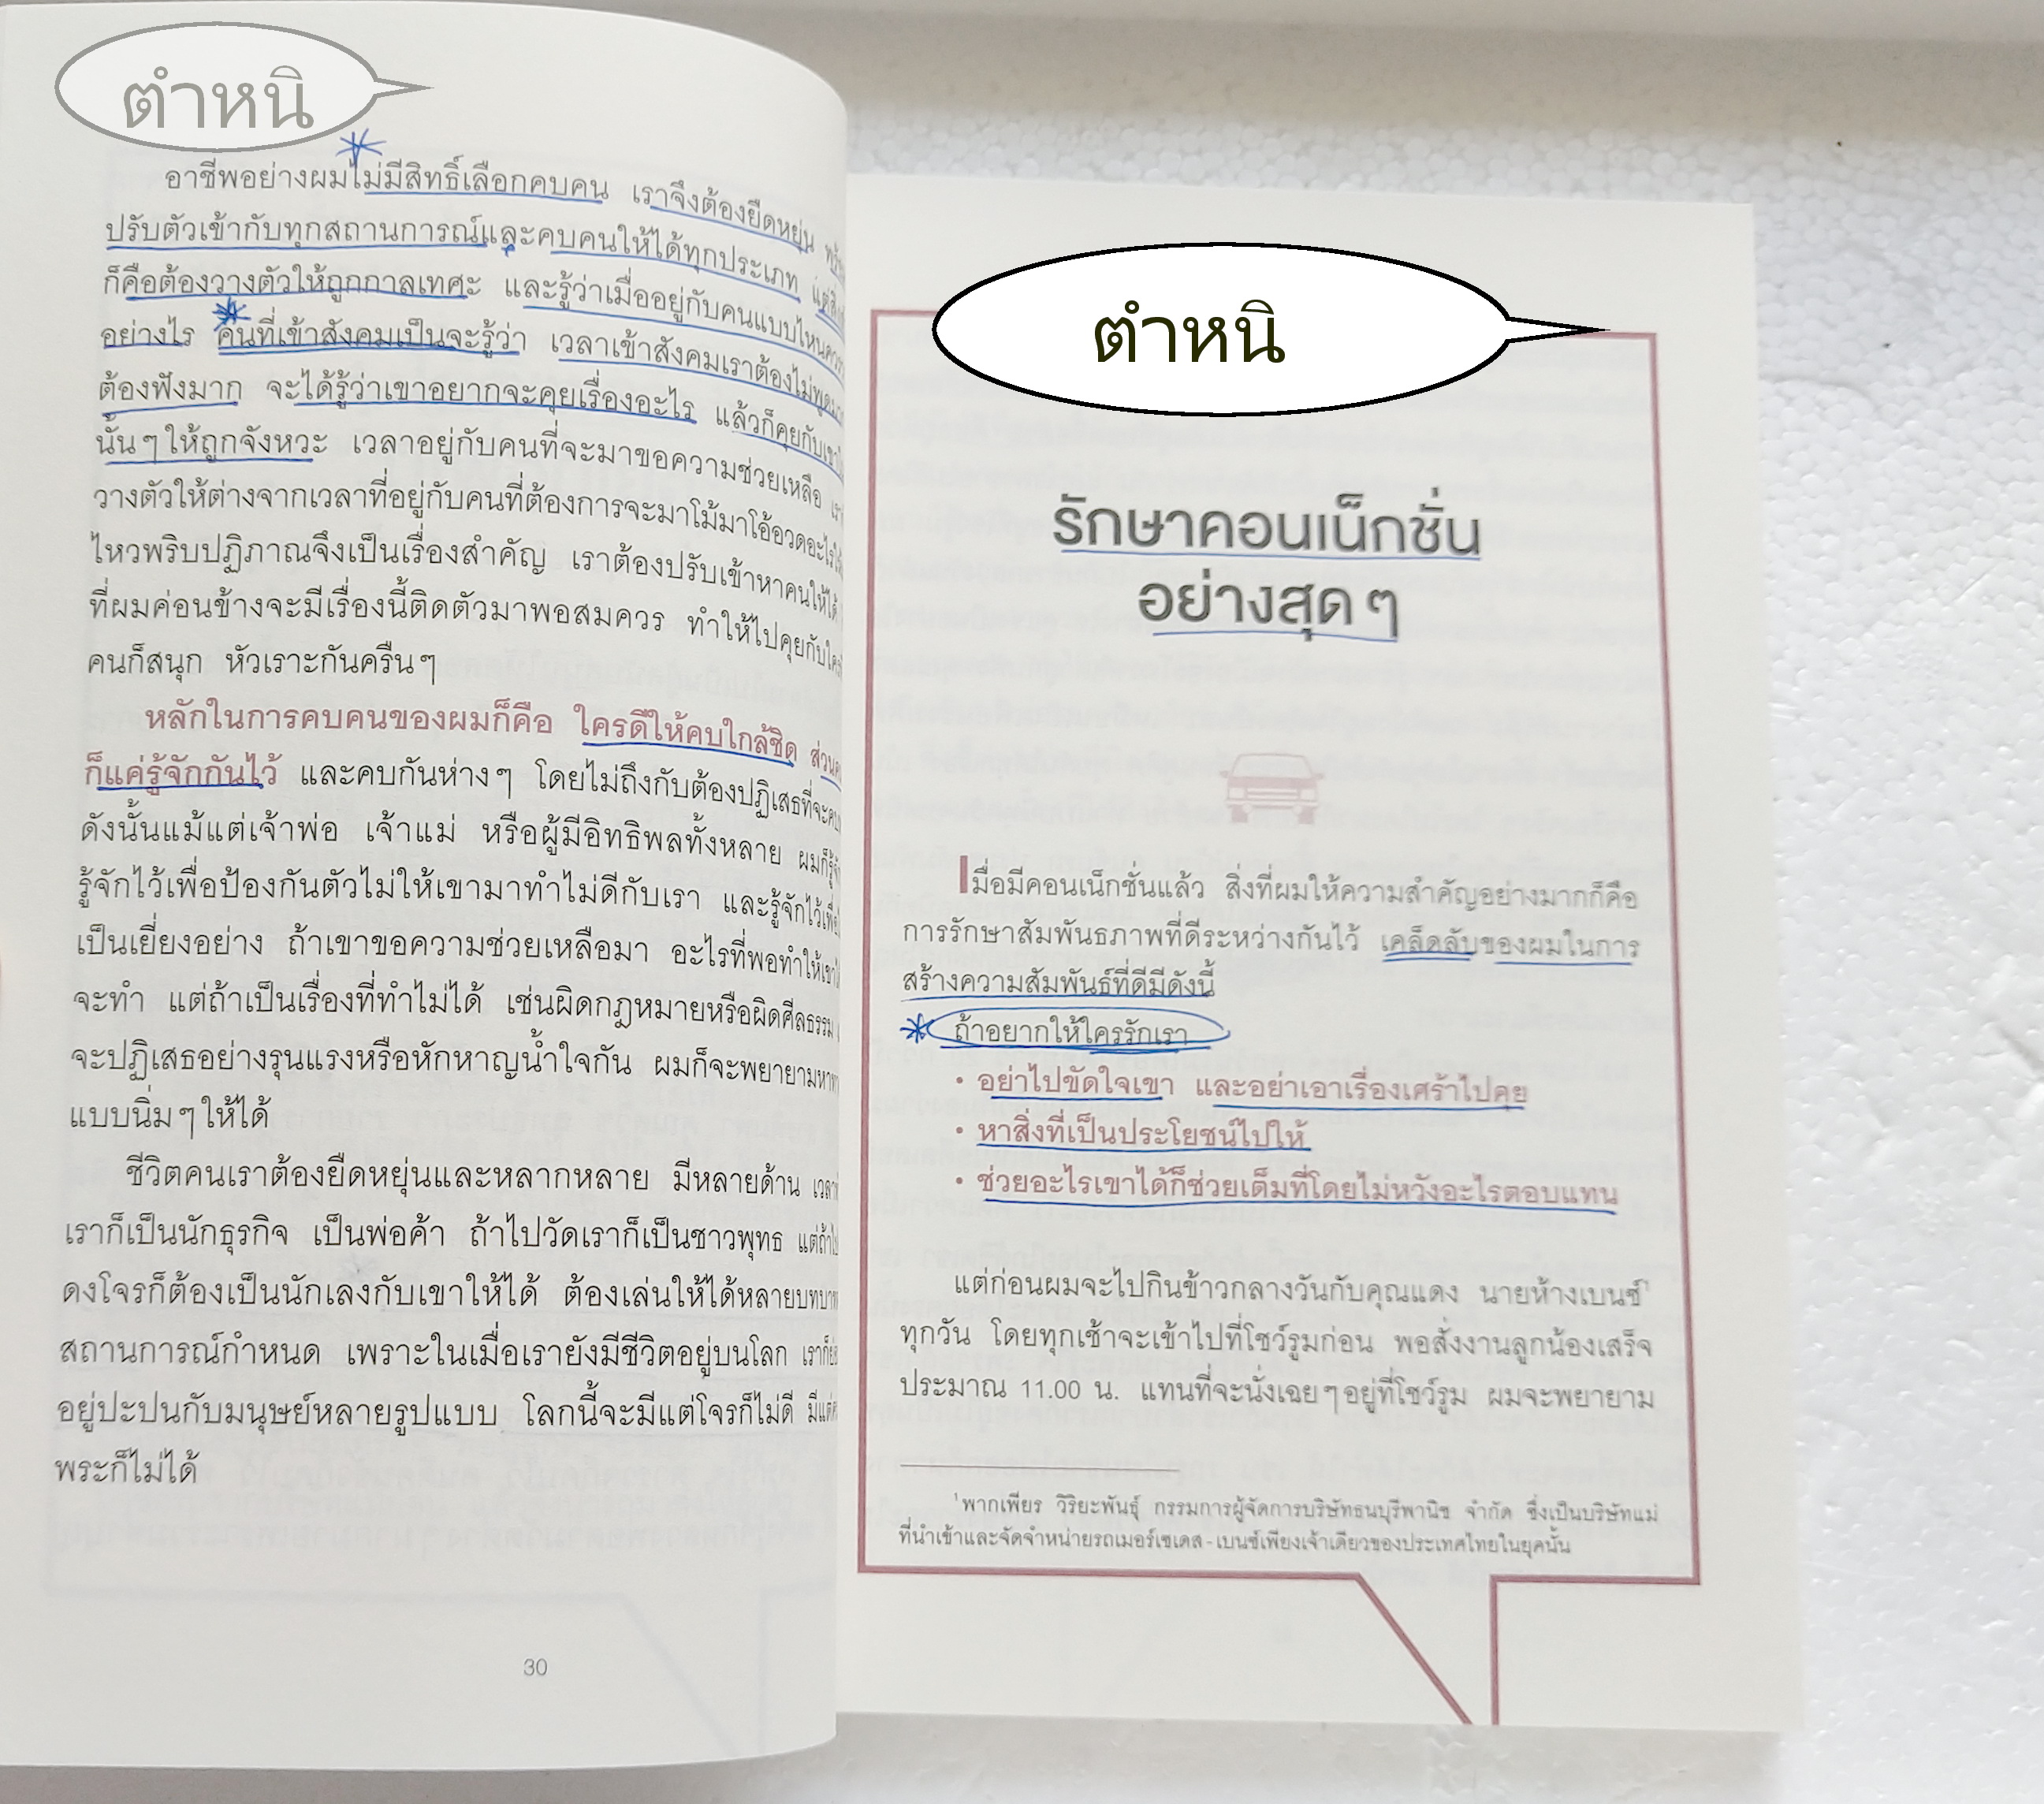 ตำหนิ
อาชีพอย่างผมไม่มีสิทธิ์เลือกคบคน เราจึงต้องยืดหยุ่น
ปรับตัวเข้ากับทุกสถานการณ์และคบคนให้ได้ทุกประเภท
ก็คือต้องวางตัวให้ถูกกาลเทศะ และรู้ว่าเมื่ออยู่กับคนแบบไหนควร
อย่างไร คนที่เข้าสังคมเป็นจะรู้ว่า เวลาเข้าสังคมเราต้องไม่พูดมาก
ต้องฟังมาก จะได้รู้ว่าเขาอยากจะคุยเรื่องอะไร แล้วก็คุยกับเขา
นั้นๆ ให้ถูกจังหวะ เวลาอยู่กับคนที่จะมาขอความช่วยเหลือ
วางตัวให้ต่างจากเวลาที่อยู่กับคนที่ต้องการจะมาโม้มาโอ้อวดอะไร
ไหวพริบปฏิภาณจึงเป็นเรื่องสำคัญ เราต้องปรับเข้าหาคนให้ได้
ที่ผมค่อนข้างจะมีเรื่องนี้ติดตัวมาพอสมควร ทำให้ไปคุยกับใคร
คนก็สนุก หัวเราะกันครืนๆ
หลักในการคบคนของผมก็คือ ใครดีให้คบใกล้ชิด ส่วน
ก็แค่รู้จักกันไว้ และคบกันห่างๆ โดยไม่ถึงกับต้องปฏิเสธที่จะคบ
ดังนั้นแม้แต่เจ้าพ่อ เจ้าแม่ หรือผู้มีอิทธิพลทั้งหลาย ผมก็รู้จัก
รู้จักไว้เพื่อป้องกันตัวไม่ให้เขามาทำไม่ดีกับเรา และรู้จักไว้
เป็นเยี่ยงอย่าง ถ้าเขาขอความช่วยเหลือมา อะไรที่พอทำให้เขา
จะทำ แต่ถ้าเป็นเรื่องที่ทำไม่ได้ เช่นผิดกฎหมายหรือผิดศีลธรรม
จะปฏิเสธอย่างรุนแรงหรือหักหาญน้ำใจกัน ผมก็จะพยายามหา
แบบนิ่มๆ ให้ได้
ชีวิตคนเราต้องยืดหยุ่นและหลากหลาย มีหลายด้าน
เราก็เป็นนักธุรกิจ เป็นพ่อค้า ถ้าไปวัดเราก็เป็นชาวพุทธ แต่ถ้า
ดงโจรก็ต้องเป็นนักเลงกับเขาให้ได้ ต้องเล่นให้ได้หลายบทบาท
สถานการณ์กำหนด เพราะในเมื่อเรายังมีชีวิตอยู่บนโลก
อยู่ปะปนกับมนุษย์หลายรูปแบบ โลกนี้จะมีแต่โจรก็ไม่ดี มีแต่
พระก็ไม่ได้
30
ตำหนิ
รักษาคอนเน็กชั่น
อย่างสุดๆ
เมื่อมีคอนเน็กชั่นแล้ว สิ่งที่ผมให้ความสำคัญอย่างมากก็คือ
การรักษาสัมพันธภาพที่ดีระหว่างกันไว้ เคล็ดลับของผมในการ
สร้างความสัมพันธ์ที่ดีมีดังนี้
ถ้าอยากให้ใครรักเรา
• อย่าไปขัดใจเขา และอย่าเอาเรื่องเศร้าไปคุย
• หาสิ่งที่เป็นประโยชน์ไปให้
• ช่วยอะไรเขาได้ก็ช่วยเต็มที่โดยไม่หวังอะไรตอบแทน
แต่ก่อนผมจะไปกินข้าวกลางวันกับคุณแดง นายห้างเบนซ์¹
ทุกวัน โดยทุกเช้าจะเข้าไปที่โชว์รูมก่อน พอสั่งงานลูกน้องเสร็จ
ประมาณ 11.00 น. แทนที่จะนั่งเฉยๆ อยู่ที่โชว์รูม ผมจะพยายาม
¹ พากเพียร วิริยะพันธุ์ กรรมการผู้จัดการบริษัทธนบุรีพานิช จำกัด ซึ่งเป็นบริษัทแม่
ที่นำเข้าและจัดจำหน่ายรถเมอร์เซเดส-เบนซ์เพียงเจ้าเดียวของประเทศไทยในยุคนั้น